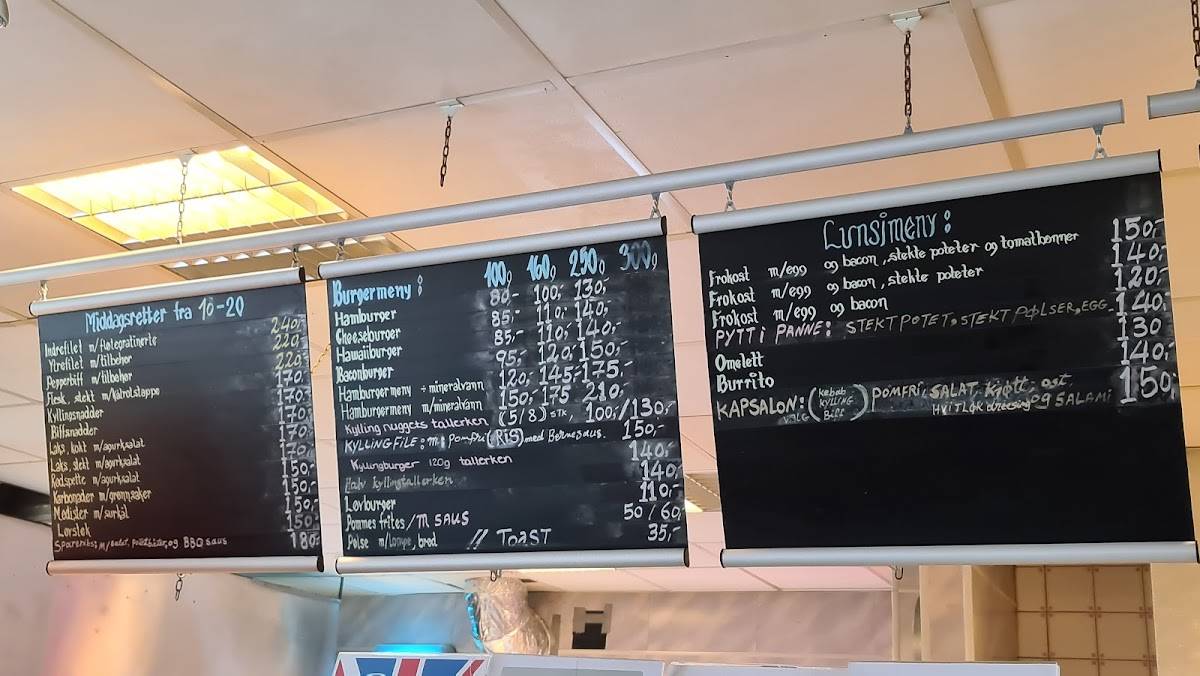 Middagsretter fra 10-20
Indrefilet m/fløtegratinerte 240,-
Ytrefilet m/tilbehør 220,-
Pepperbiff m/tilbehør 220,-
Flesk, stekt m/kålrotstappe 170,-
Kyllingsnadder 170,-
Biffsnadder 170,-
Laks, kokt m/agurksalat 170,-
Laks, stekt m/agurksalat 170,-
Rødspette m/agurksalat 150,-
Karbonader m/grønnsaker 150,-
Medister m/surkål 150,-
Lørsløk 150,-
Spareribs: m/salat, og BBQ saus 180,-
Burgermeny: 100g 160g 250g 300g
Hamburger 80,- 100,- 130,-
Cheeseburger 85,- 110,- 140,-
Hawaiiburger 85,- 110,- 140,-
Baconburger 95,- 120,- 150,-
Hamburgermeny ÷ mineralvann 120,- 145,- 175,-
Hamburgermeny m/mineralvann 150,- 175,- 210,-
Kylling nuggets tallerken (5/8) STK, 100,-/130,-
KYLLING FILE: m: Pomfri (RIS) med Bernesaus. 150,-
Kyllingburger 120g tallerken 140,-
Halv kyllingtallerken 140,-
Løvburger 110,-
Pommes frites/M SAUS 50/60,-
Pølse m/lompe, brød // TOAST 35,-
Lunsjmeny:
Frokost m/egg og bacon, stekte poteter og tomatbønner 150,-
Frokost m/egg og bacon, stekte poteter 140,-
Frokost m/egg og bacon 120,-
PYTTI PANNE: STEKT POTET, STEKT PØLSER, EGG 140,-
Omelett 130
Burrito 140,-
KAPSALON: VALG (Kebab KYLLING Biff) POMFRI, SALAT, kjøtt, ost, HVITLØK og SALAMI 150,-